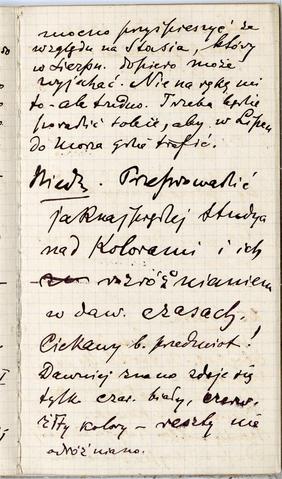 mocno przyśpieszyć ze
względu na Stasia, który
w Sierpn. dopiero może
wyjechać. Nie na rękę mi
to – ale trudno. Trzeba będzie
poradzić sobie, aby w Lipcu
do morza gdzie trafić.
Niedz. Przeprowadzić
jaknajprędzej studya
nad Kolorami i ich
rozróżnianiem
w daw. czasach.
Ciekawy b. przedmiot!
Dawniej znano zdaje się
tylko czar. biały, czerw.
żółty kolory – reszty nie
odróżniano.